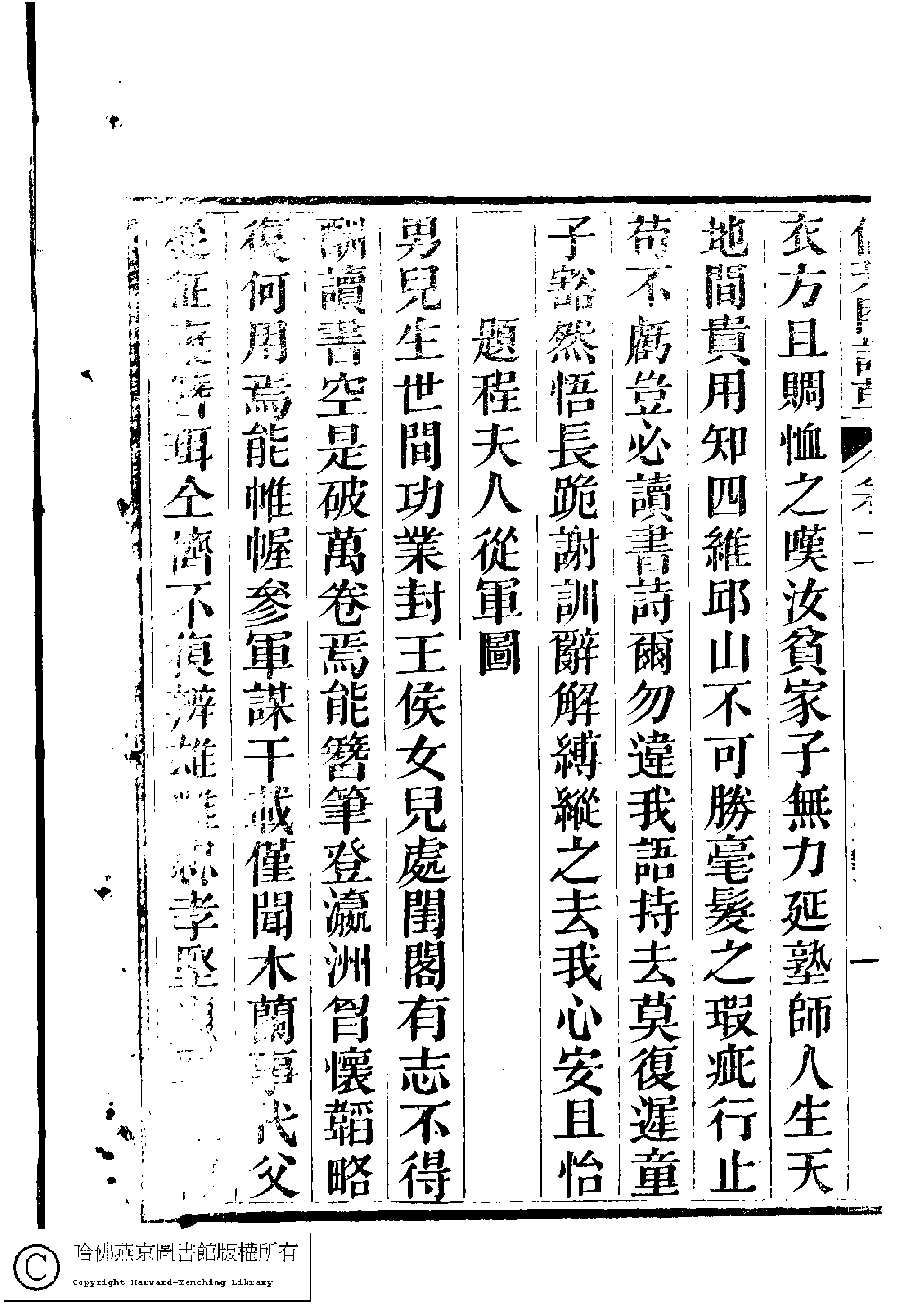 卷二
一
衣方且賙恤之嘆汝貧家子無力延塾師人生天
地間貴用知四維邱山不可勝毫髮之瑕疵行止
苟不虧豈必讀書詩爾勿違我語持去莫復遲童
子豁然悟長跪謝訓辭解縛縱之去我心安且怡
題程夫人從軍圖
男兒生世間功業封王侯女兒處閨閣有志不得
酬讀書空是破萬卷焉能簪筆登瀛洲胷懷韜略
復何用焉能帷幄參軍謀千載僅聞木蘭事代父
從征 仝 不 辨雄 孝
哈佛燕京圖書館版權所有
Copyright Harvard-Yenching Library